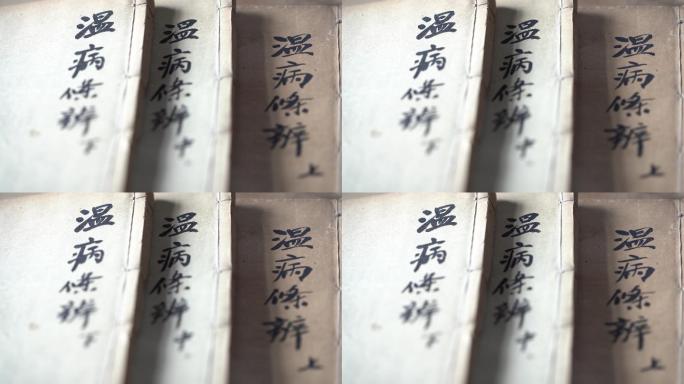 温病條辨下
温病條辨中
温病條辨上
温病條辨下
温病條辨中
温病條辨上
温病條辨下
温病條辨中
温病條辨上
温病條辨下
温病條辨中
温病條辨上